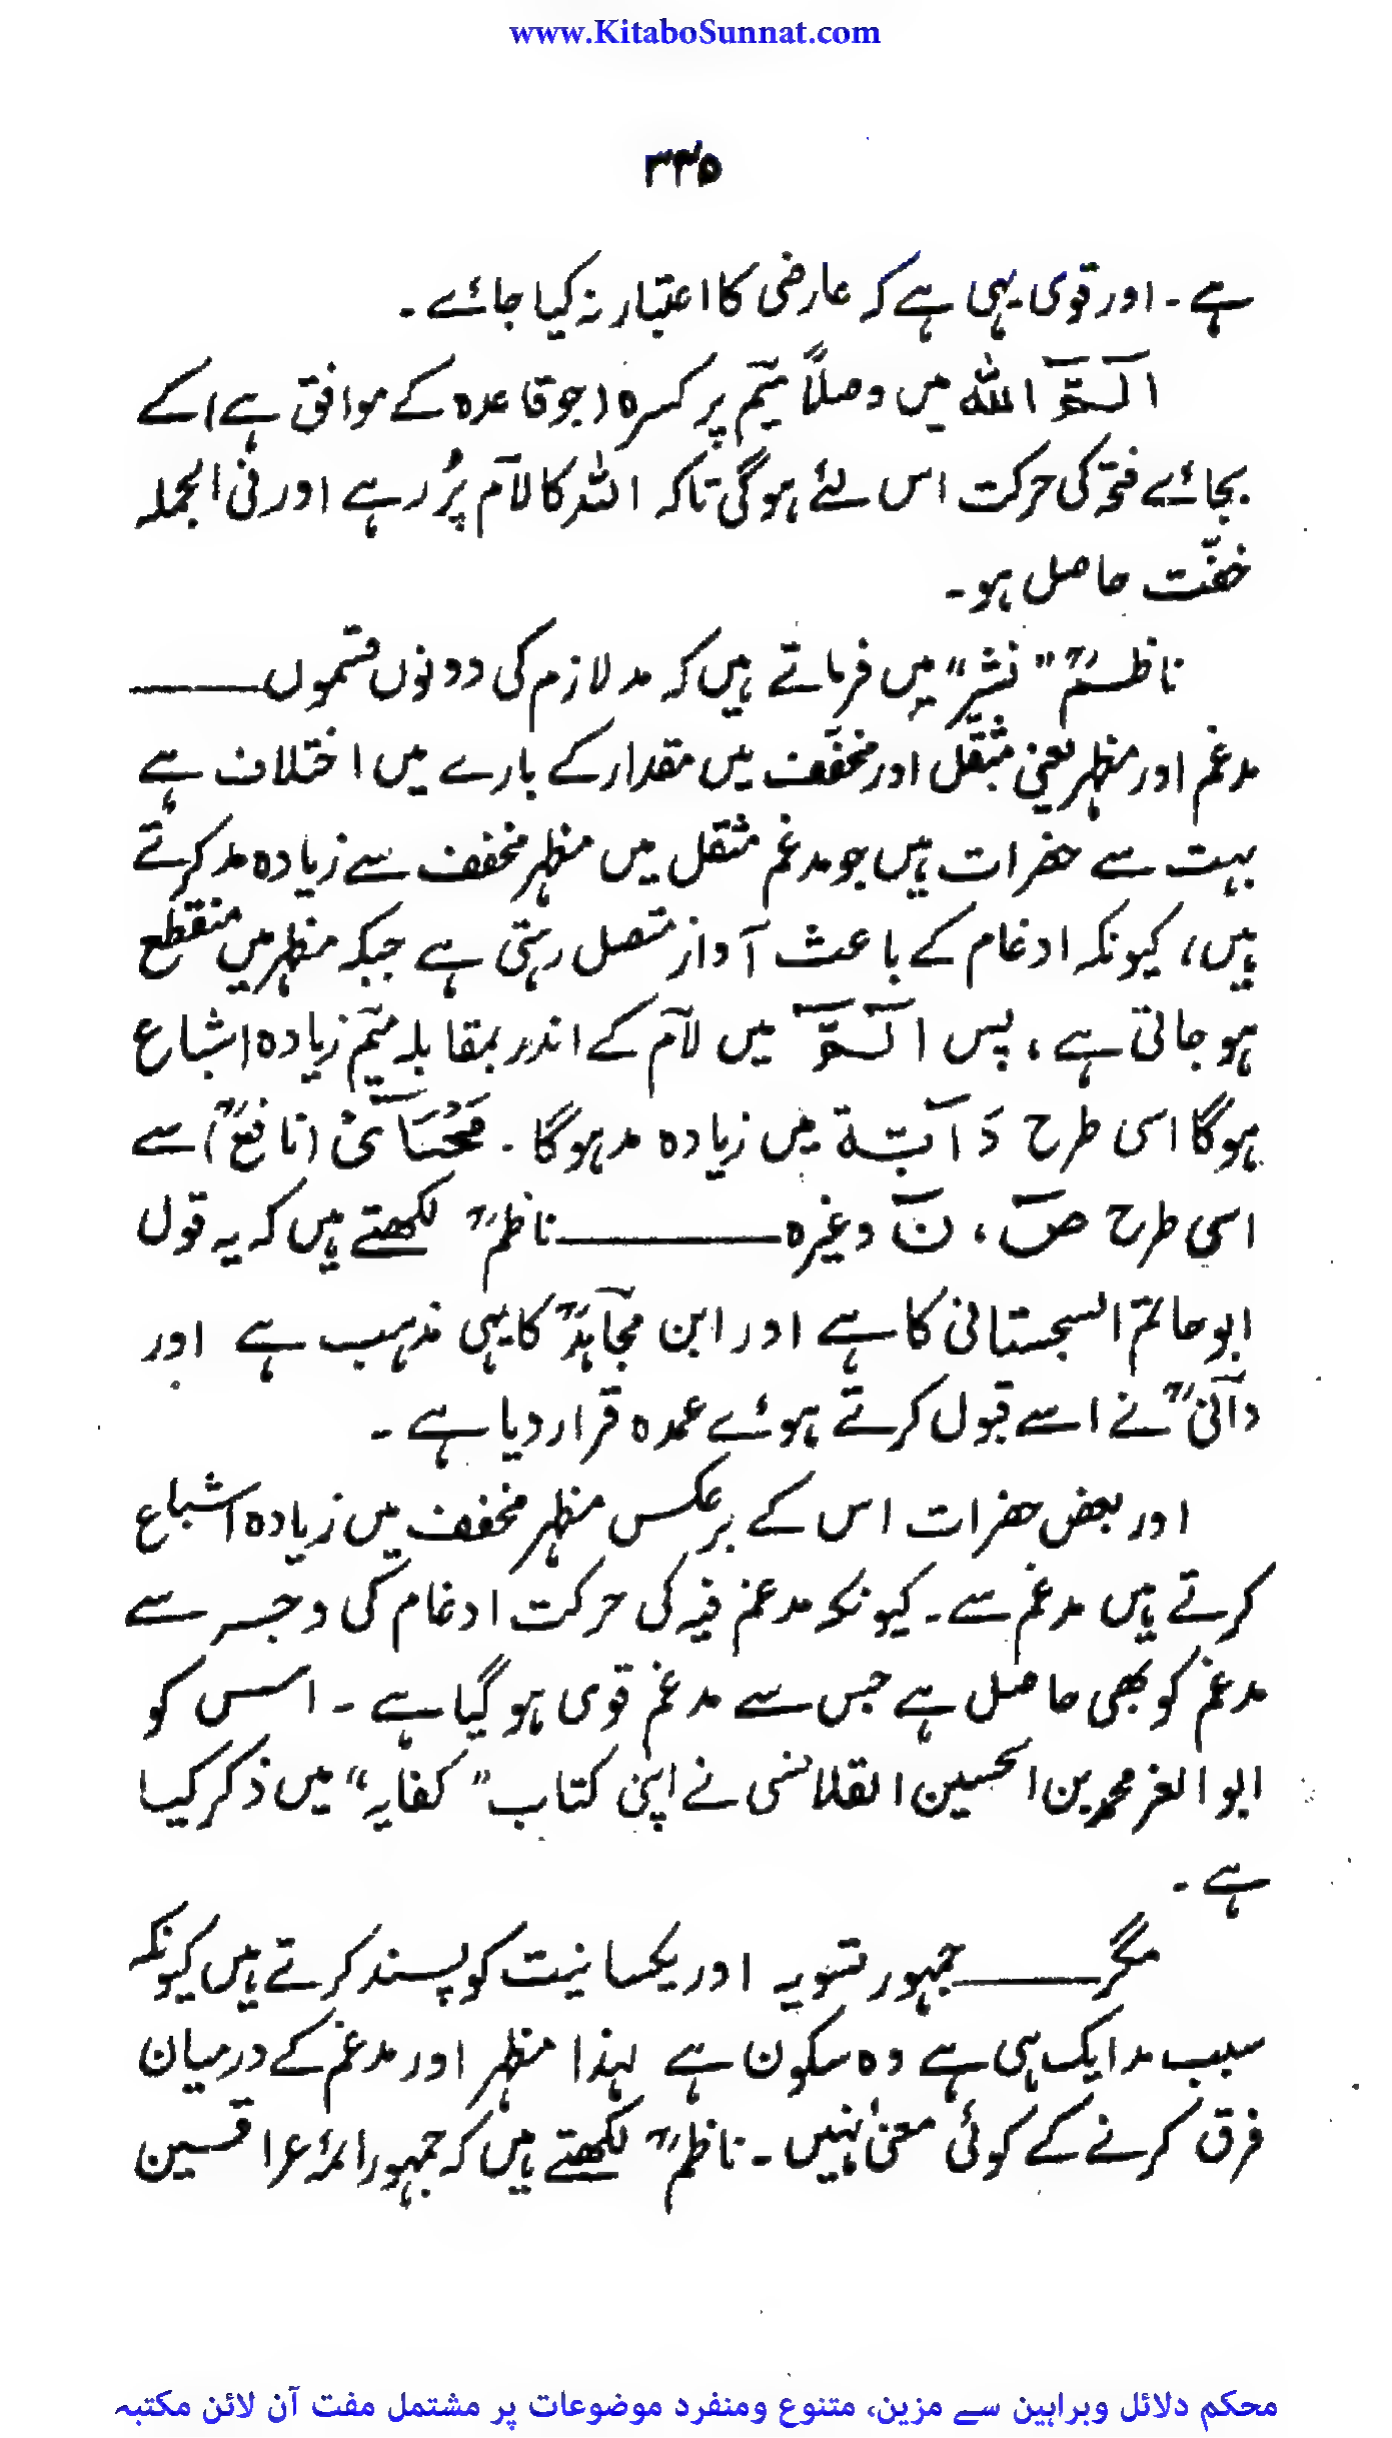 www.KitaboSunnat.com
۳۳۵
ہے۔ اور قوی یہی ہے کہ عارضی کا اعتبار نہ کیا جائے۔
الٓـمّٓ اللہ میں وصلاً میٓم پر کسرہ (جو قاعدہ کے موافق ہے) کے
بجائے فتحہ کی حرکت اس لئے ہوگی تاکہ اللہ کا لآم پُر رہے اور فی الجملہ
خفّت حاصل ہو۔
ناظمؒ ”نشر“ میں فرماتے ہیں کہ مد لازم کی دونوں قسموں ــــــ
مدغم اور مظہر یعنی مثقّل اور مخفّف میں مقدار کے بارے میں اختلاف ہے
بہت سے حضرات ہیں جو مدغم مثقل میں مظہر مخفف سے زیادہ مد کرتے
ہیں، کیونکہ ادغام کے باعث آواز متصل رہتی ہے جبکہ مظہر میں منقطع
ہو جاتی ہے، پس الٓـمّٓ میں لآم کے اندر بمقابلہ میٓم زیادہ اشباع
ہوگا اسی طرح دَآبّـة میں زیادہ مد ہوگا۔ مَحْیَآیْ (نافعؒ) سے
اسی طرح صٓ، نٓ وغیرہ ــــــــــــ ناظمؒ لکھتے ہیں کہ یہ قول
ابو حاتم السجستانی کا ہے اور ابن مجآہدؒ کا یہی مذہب ہے اور
دآنیؒ نے اسے قبول کرتے ہوئے عمدہ قرار دیا ہے۔
اور بعض حضرات اس کے برعکس مظہر مخفف میں زیادہ اشباع
کرتے ہیں مدغم سے۔ کیونکہ مدغم فیہ کی حرکت ادغام کی وجہ سے
مدغم کو بھی حاصل ہے جس سے مدغم قوی ہو گیا ہے۔ اس کو
ابو العز محمد بن الحسین القلانسی نے اپنی کتاب ”کفایہ“ میں ذکر کیا
ہے۔
مگر ــــــــ جمہور تسویہ اور یکسانیت کو پسند کرتے ہیں کیونکہ
سبب مد ایک ہی ہے وہ سکون ہے لہذا مظہر اور مدغم کے درمیان
فرق کرنے کے کوئی معنیٰ نہیں۔ ناظمؒ لکھتے ہیں کہ جمہور ائمہ عراقیین
محکم دلائل وبراہین سے مزین، متنوع ومنفرد موضوعات پر مشتمل مفت آن لائن مکتبہ